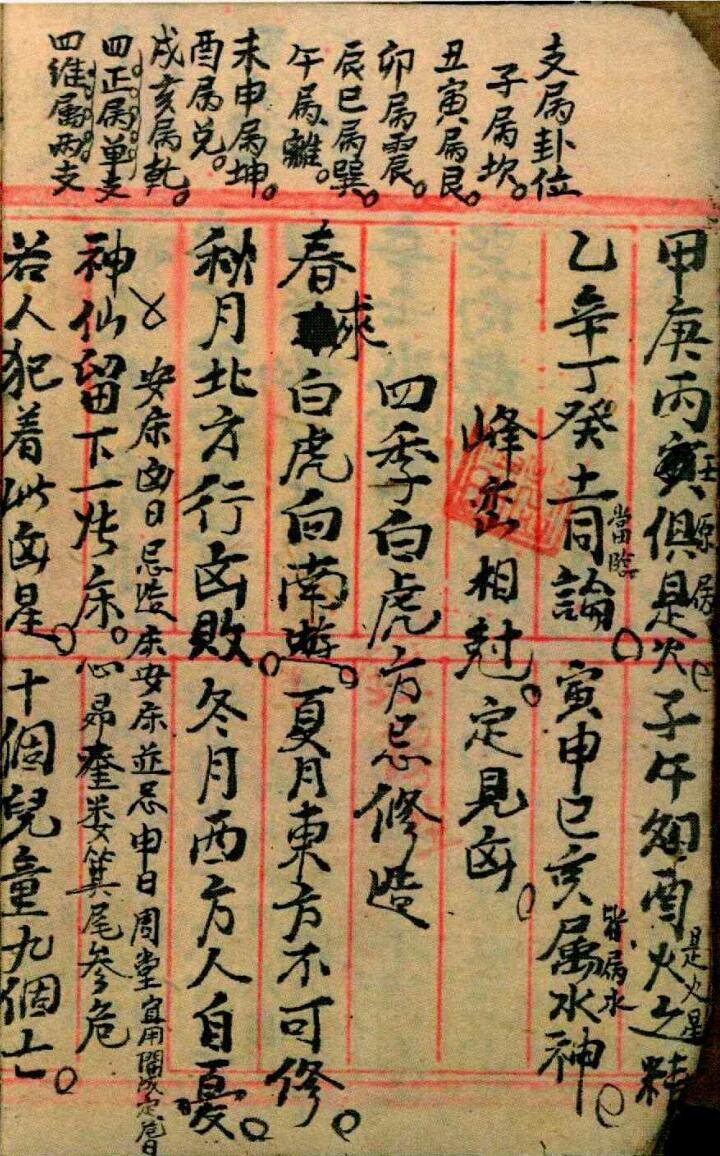 支属卦位
子属坎。
丑寅属艮
卯属震。
辰巳属巽。
午属離。
未申属坤。
酉属兑。
戌亥属乾。
四正属单支
四维属两支
甲庚丙寅俱是火子午夘酉火之精
壬原属
是火星
乙辛丁癸土同論。寅申巳亥属水神。
當臨
皆属水
峰峦相尅。定見凶。
四季白虎方忌修造
春來白虎向南遊。夏月東方不可修。
秋月北方行凶敗。冬月西方人自憂。
安床凶日忌造床安床並忌申日周堂宜用開成定危日
神仙留下一张床。心昴奎娄箕尾參危
若人犯着此凶星。十個兒童九個亡。